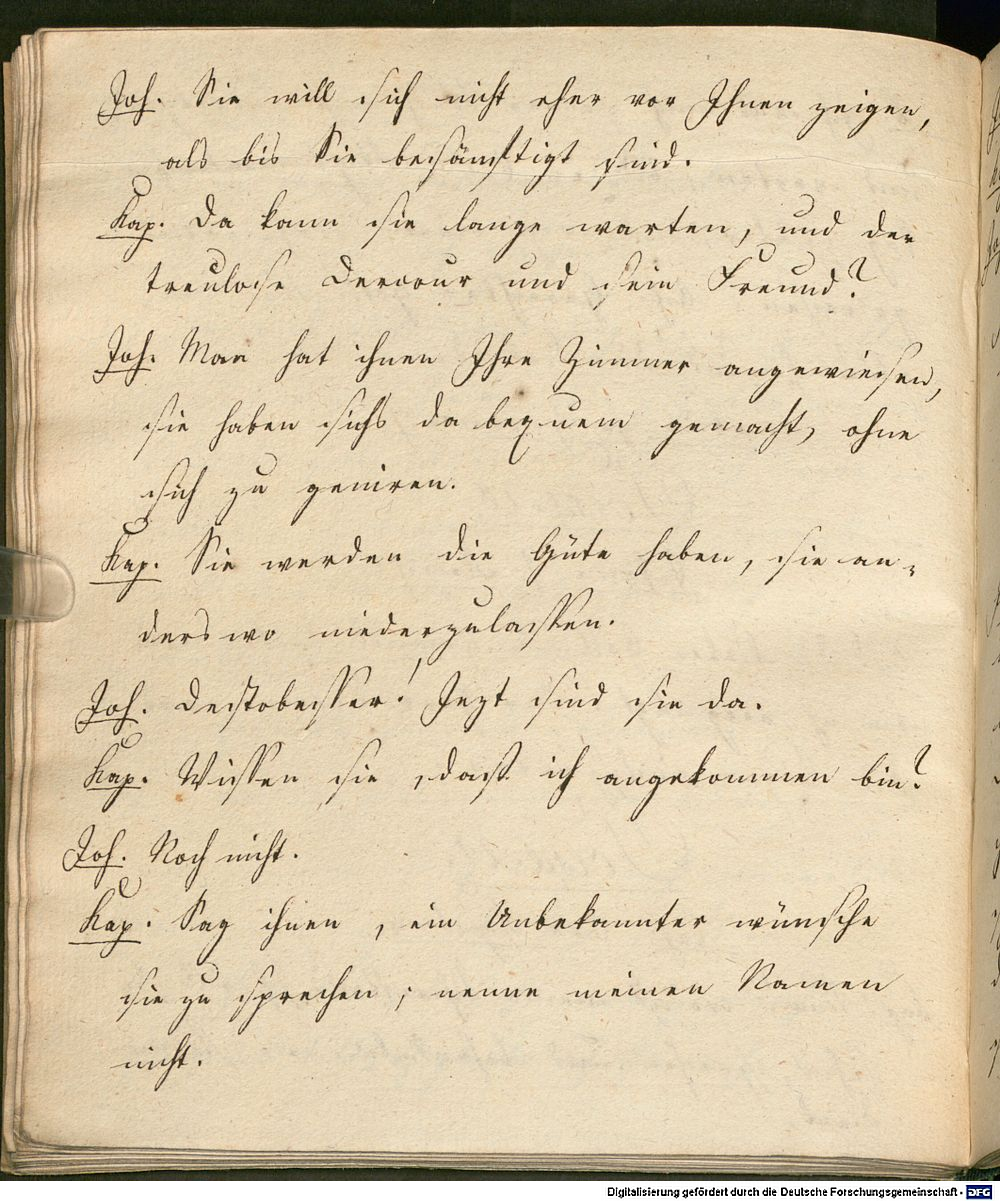 Joh. Sie will sich nicht eher vor Ihnen zeigen,
als bis Sie besänftigt sind.
Kap. Da kann sie lange warten, und der
treulose Dervour und sein Freund?
Joh. Man hat ihnen Ihre Zimmer angewiesen,
sie haben sichs da bequem gemacht, ohne
sich zu geniren.
Kap. Sie werden die Güte haben, sie an-
derswo niederzulassen.
Joh. Destobesser! Jezt sind sie da.
Kap. Wissen sie, daß ich angekommen bin?
Joh. Noch nicht.
Kap. Sag ihnen, ein Unbekannter wünsche
sie zu sprechen; nenne meinen Namen
nicht.
Digitalisierung gefördert durch die Deutsche Forschungsgemeinschaft - DFG